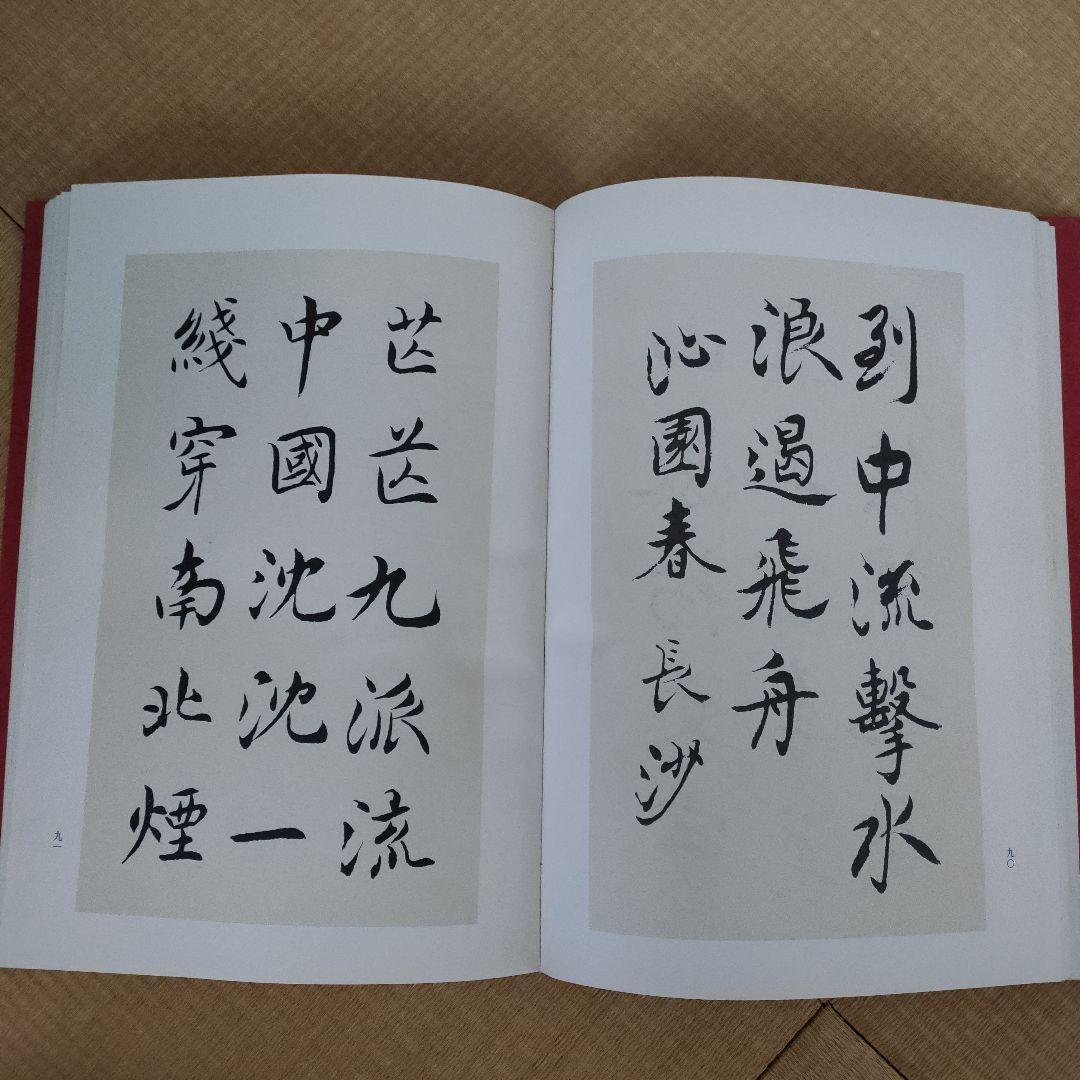 到中流擊水
浪遏飛舟
沁園春 長沙
九〇
茫茫九派流
中國沈沈一
綫穿南北煙
九一